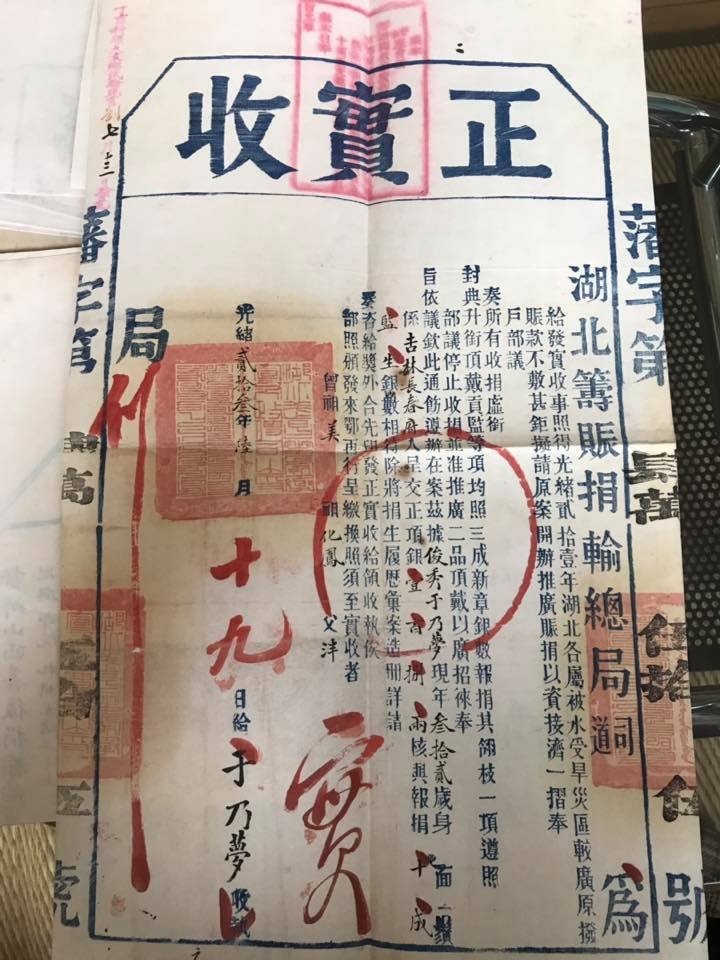 正實收
湖北籌賑捐輸總局司道 為
給發實收事照得光緒貳拾壹年湖北各屬被水受旱災區較廣原撥
賑款不敷甚鉅擬請原案開辦推廣賑捐以資接濟一摺奉
戶部議
奏所有收捐虛銜
封典升銜頂戴貢監等項均照三成新章銀數報捐其翎枝一項遵照
部議停止收捐並准推廣二品頂戴以廣招徠奉
旨依議欽此通飭遵辦在案茲據俊秀于乃夢現年叁拾貳歲身 面 鬚
係吉林長春府人呈交正項銀壹百 捌 兩核與報捐 十成
監生銀數相符除將捐生履歷彙案造冊詳請
奏咨給獎外合先填發正實收給領收執俟
部照頒發來鄂再行呈繳換照須至實收者
曾祖美 祖化鳳 父洋
光緒貳拾叁年陸月十九日給于乃夢收執
實
局
藩字第
肆萬
伍拾
伍
號
藩字第
號